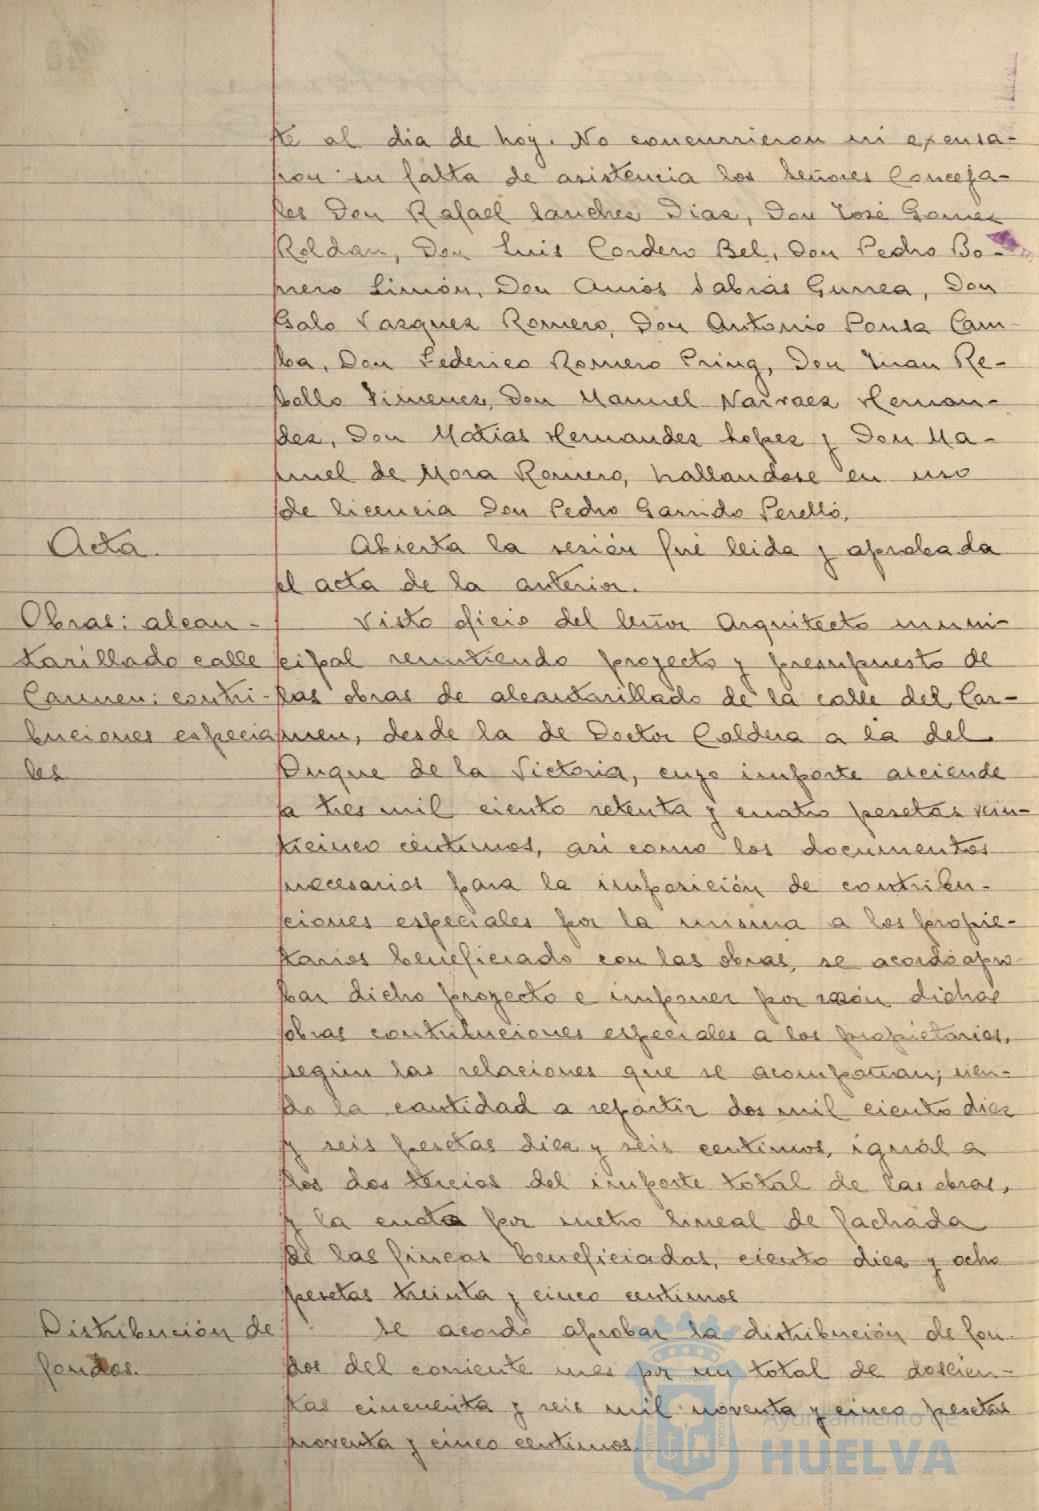 te al dia de hoy. No concurrieron ni excusa-
ron su falta de asistencia los Señores Conceja-
les Don Rafael Sanchez Diaz, Don José Gomez
Roldan, Don Luis Cordero Bel, Don Pedro Bo-
rrero Limón, Don Amós Sabrás Gurrea, Don
Galo Vazquez Romero, Don Antonio Ponsa Cam-
ba, Don Federico Romero Pring, Don Juan Re-
bollo Jimenez, Don Manuel Narvaez Hernan-
dez, Don Matias Hernandez Lopez y Don Ma-
nuel de Mora Romero, hallandose en uso
de licencia Don Pedro Garrido Perelló.
Acta.
Abierta la sesión fué leida y aprobada
el acta de la anterior.
Obras: alcan-
tarillado calle
Carmen: contri-
buciones especia
les
Visto oficio del Señor Arquitecto muni-
cipal remitiendo proyecto y presupuesto de
las obras de alcantarillado de la calle del Car-
men, desde la de Doctor Caldera a la del
Duque de la Victoria, cuyo importe asciende
a tres mil ciento setenta y cuatro pesetas vein-
ticinco centimos, asi como los documentos
necesarios para la imposición de contribu-
ciones especiales por la misma a los propie-
tarios beneficiado con las obras, se acordó apro-
bar dicho proyecto e imponer por razón dichas
obras contribuciones especiales a los propietarios,
según las relaciones que se acompañan; sien-
do la cantidad a repartir dos mil ciento diez
y seis pesetas diez y seis centimos, igual a
los dos tercios del importe total de las obras,
y la cuota por metro lineal de fachada
de las fincas beneficiadas, ciento diez y ocho
pesetas treinta y cinco centimos
Distribución de
fondos.
Se acordó aprobar la distribución de fon-
dos del corriente mes por un total de doscien-
tas cincuenta y seis mil noventa y cinco pesetas
noventa y cinco centimos.
Ayuntamiento de
HUELVA